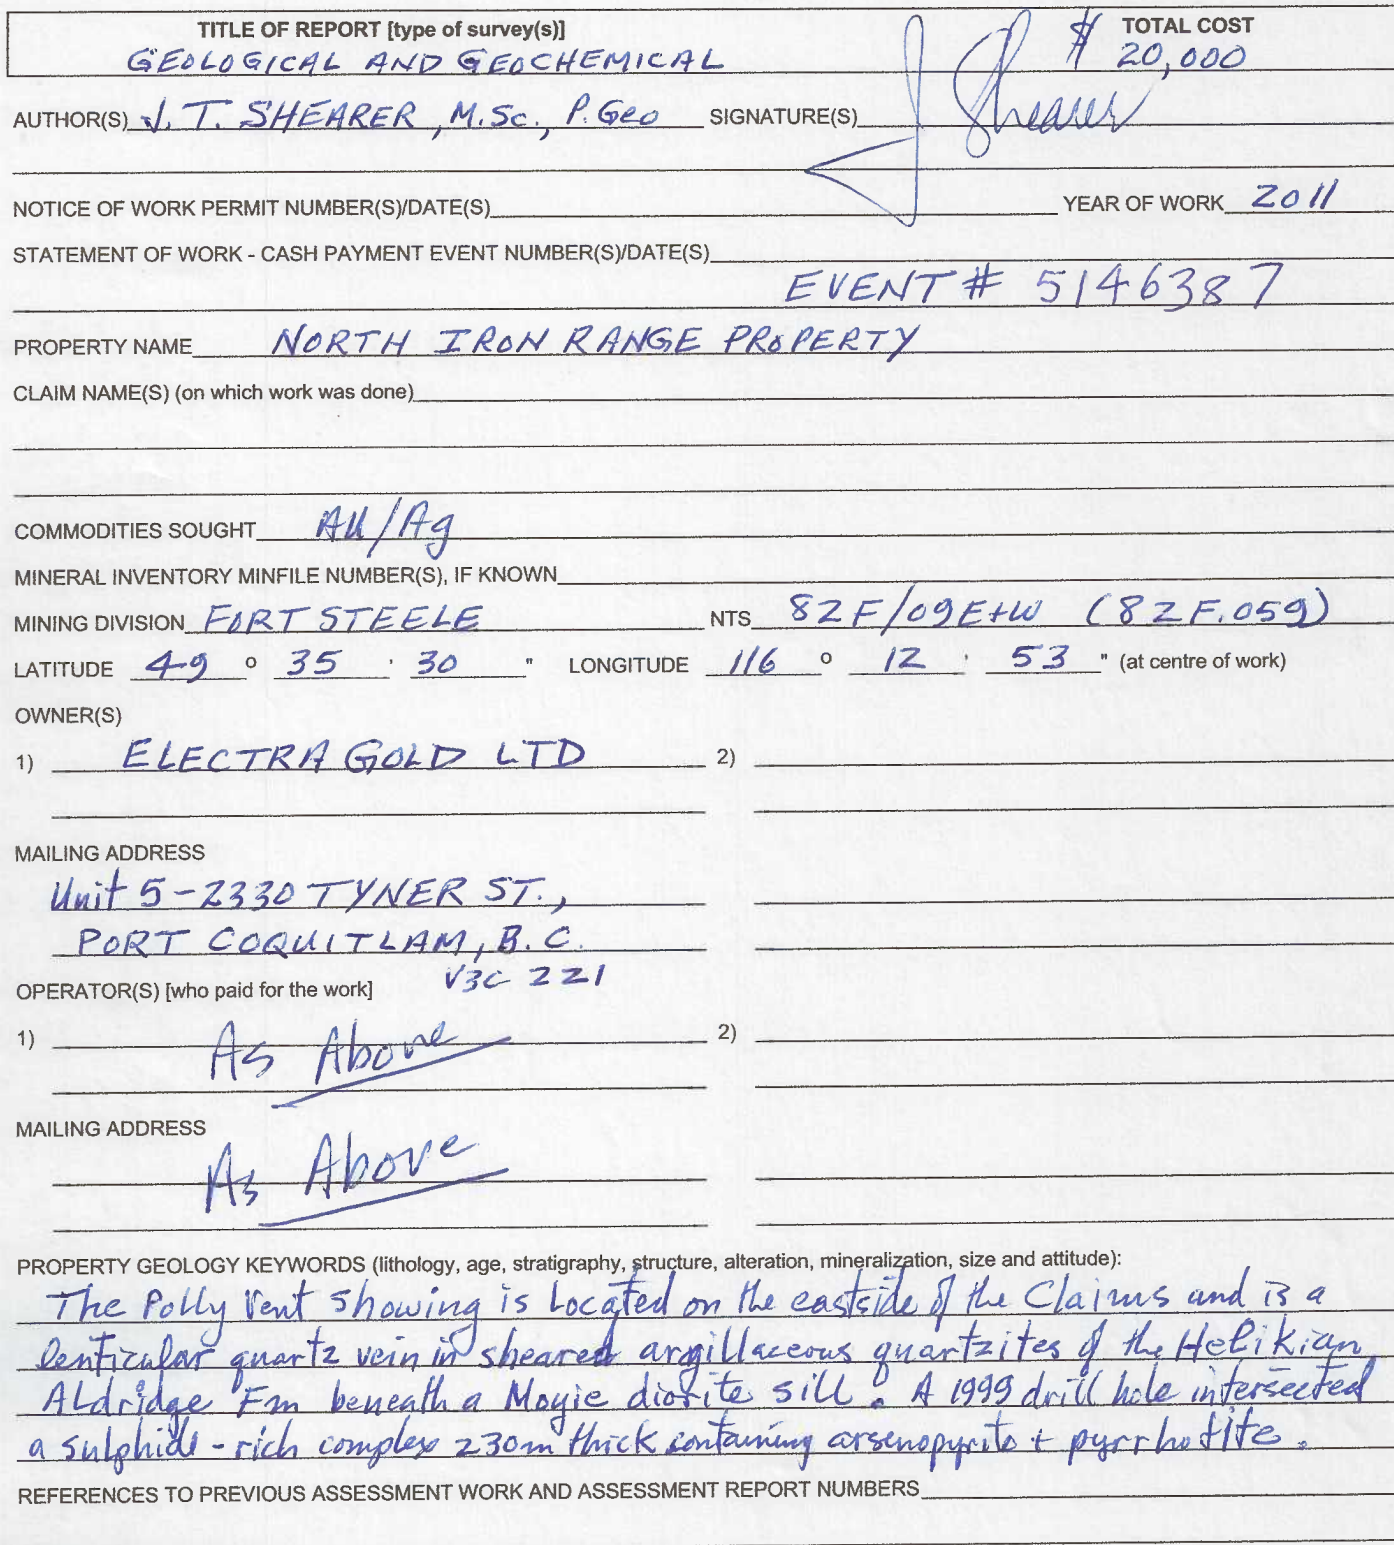 TITLE OF REPORT [type of survey(s)] TOTAL COST
GEOLOGICAL AND GEOCHEMICAL $ 20,000
AUTHOR(S) J. T. SHEARER, M.Sc., P. Geo SIGNATURE(S) J Shearer
NOTICE OF WORK PERMIT NUMBER(S)/DATE(S) YEAR OF WORK 2011
STATEMENT OF WORK - CASH PAYMENT EVENT NUMBER(S)/DATE(S)
EVENT # 5146387
PROPERTY NAME NORTH IRON RANGE PROPERTY
CLAIM NAME(S) (on which work was done)
COMMODITIES SOUGHT Au/Ag
MINERAL INVENTORY MINFILE NUMBER(S), IF KNOWN
MINING DIVISION FORT STEELE NTS 82F/09E+W (82F.059)
LATITUDE 49 ° 35 ' 30 " LONGITUDE 116 ° 12 ' 53 " (at centre of work)
OWNER(S)
1) ELECTRA GOLD LTD 2)
MAILING ADDRESS
Unit 5-2330 TYNER ST.,
PORT COQUITLAM, B.C.
V3C 2Z1
OPERATOR(S) [who paid for the work]
1) As Above 2)
MAILING ADDRESS
As Above
PROPERTY GEOLOGY KEYWORDS (lithology, age, stratigraphy, structure, alteration, mineralization, size and attitude):
The Polly Vent Showing is Located on the eastside of the Claims and is a
lenticular quartz vein in sheared argillaceous quartzites of the Helikian
ALdridge Fm beneath a Moyie diorite sill. A 1999 drill hole intersected
a sulphide-rich complex 230m thick containing arsenopyrite + pyrrhotite.
REFERENCES TO PREVIOUS ASSESSMENT WORK AND ASSESSMENT REPORT NUMBERS